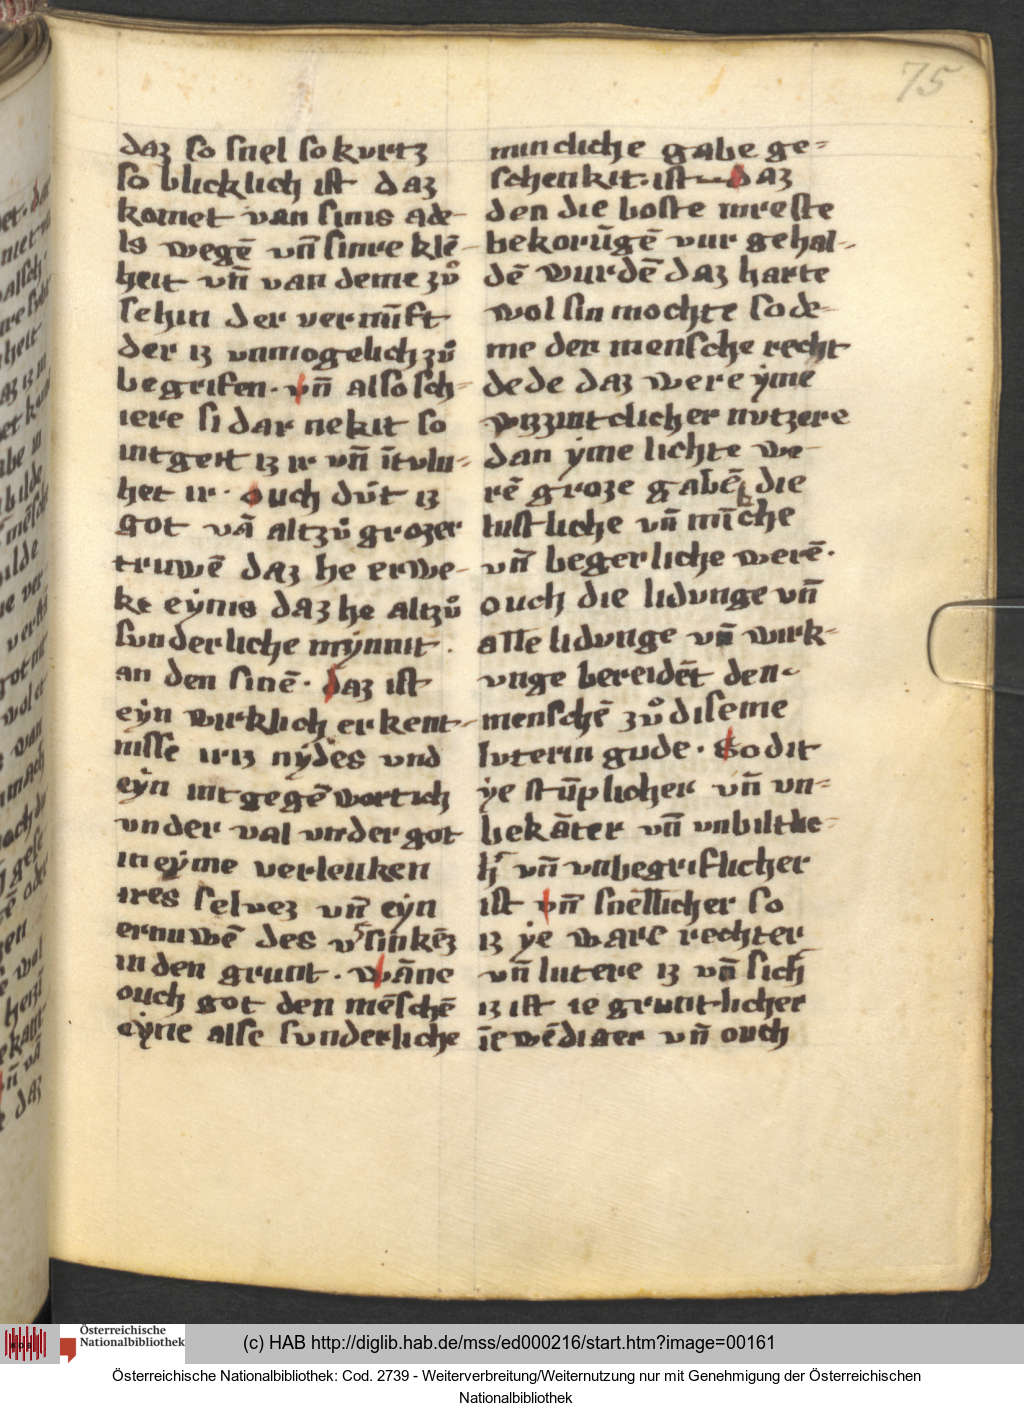 75
daz so snel so kurtz
so blicklich ist daz
komet van sims ade-
ls wegē vn̄ sinre klē-
heit vn̄ van deme zuͦ
sehin der vernūft
der iz vnmogelich zuͦ
begrifen · vn̄ also sch-
iere si dar nekit so
intgeit iz ir vn̄ ītvlu-
het ir · ouch dv́t iz
got vā altzuͦ grozer
truwē daz he erwe-
ke eẏnis daz he altzuͦ
sunderliche mẏnnit ·
an den sinē · daz ist
eẏn wirklich erkent-
nisse iriz nẏdes vnd
eẏn intgegēwortich
vnder val vnder got
in eẏme verleuken
ires selvez vn̄ eẏn
ernuwē des v'sinkēz
in den grunt · wāne
ouch got den mēschē
eẏne alse sunderliche
mincliche gabe ge-
schenkit · ist daz
den die boste inreste
bekorūgē vur gehal-
dē wurdē daz harte
wol sin mochte so de-
me den mensche recht
dede daz were ẏme
wizzintclicher nutzere
dan ẏme lichte we-
rē groze gabē die
lustliche vn̄ mīche
vn̄ begerliche werē ·
ouch die lidunge vn̄
alle lidvnge vn̄ wirk-
vnge bereidēt den
menschē zuͦ diseme
luterin gude · so dit
ẏe stūplicher vn̄ vn-
bekāter vn̄ vnbiltli-
h' vn̄ vnbegriflicher
ist vn̄ snellicher so
iz ẏe ware rechter
vn̄ lutere iz vn̄ sich
iz ist ie gruntlicher
īewēdiger vn̄ ouch
Österreichische
Nationalbibliothek
(c) HAB http://diglib.hab.de/mss/ed000216/start.htm?image=00161
Österreichische Nationalbibliothek: Cod. 2739 - Weiterverbreitung/Weiternutzung nur mit Genehmigung der Österreichischen
Nationalbibliothek